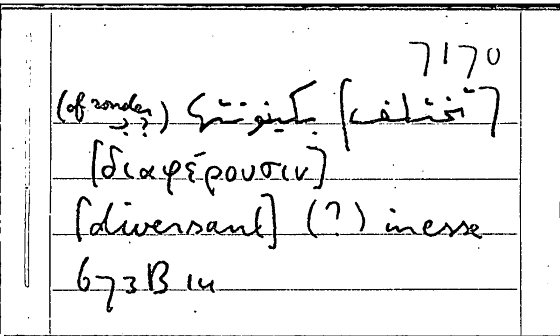 7170
[تختلف] بكينونتها (of zonder ??)
[διαφέρουσιν]
[diversant] (?) inesse
673B 14